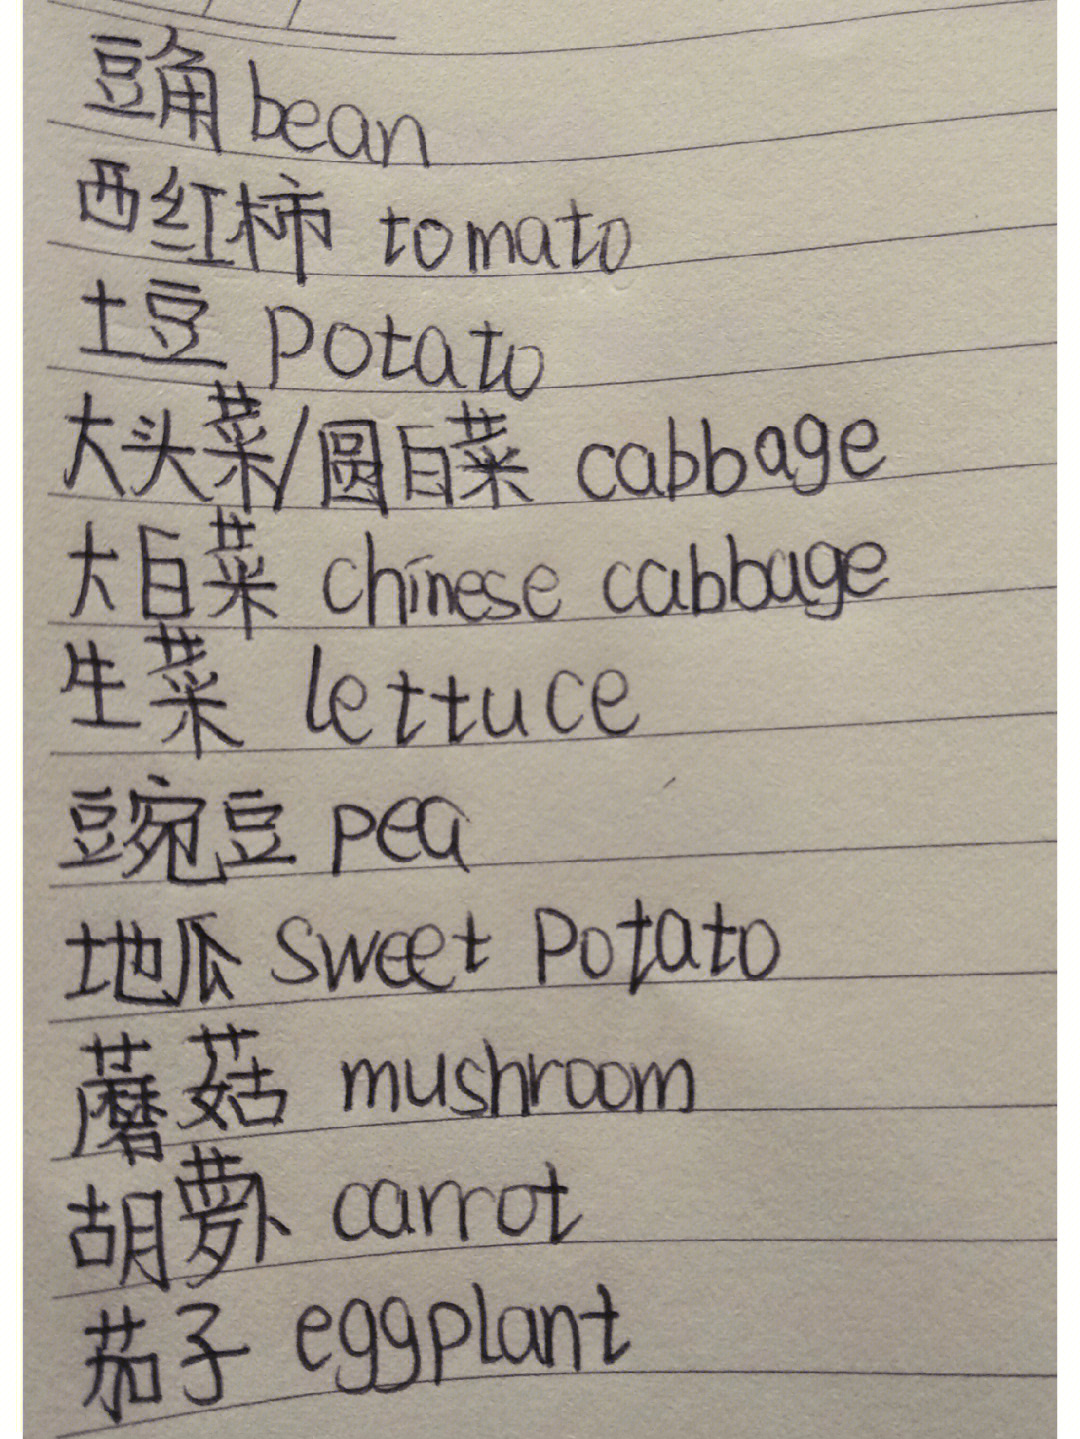 豆角 bean
西红柿 tomato
土豆 potato
大头菜/圆白菜 cabbage
大白菜 chinese cabbage
生菜 lettuce
豌豆 pea
地瓜 sweet potato
蘑菇 mushroom
胡萝卜 carrot
茄子 eggplant